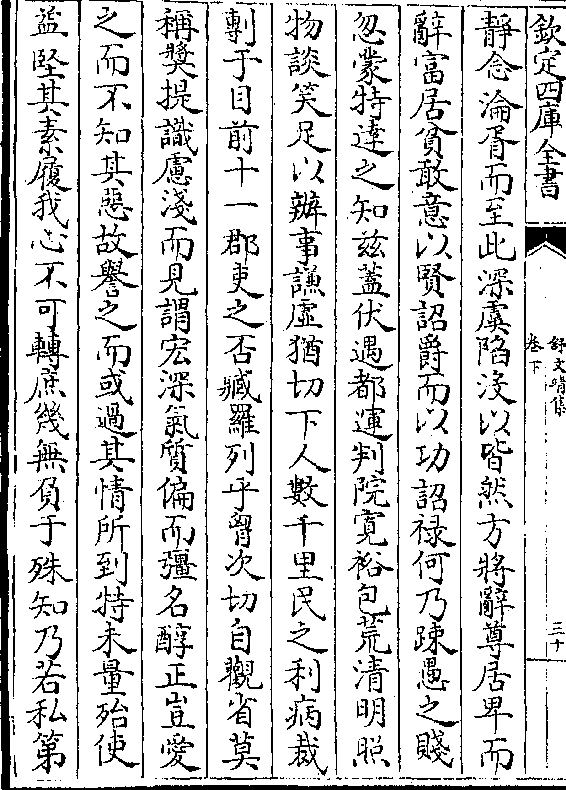 欽定四庫全書
舒文靖集
卷下
三十
静念淪胥而至此深虞陷没以皆然方將辭尊居卑而
辭富居貧敢意以賢詔爵而以功詔禄何乃踈愚之賤
忽蒙特達之知兹蓋伏遇都運判院寛裕包荒清明照
物談笑足以辦事謙虚猶切下人數千里民之利病裁
剸于目前十一郡吏之否臧羅列乎胷次切自觀省莫
稱奬提識慮淺而見謂宏深氣質偏而彊名醇正豈愛
之而不知其惡故譽之而或過其情所到特未量殆使
益堅其素履我心不可轉庶幾無負于殊知乃若私第